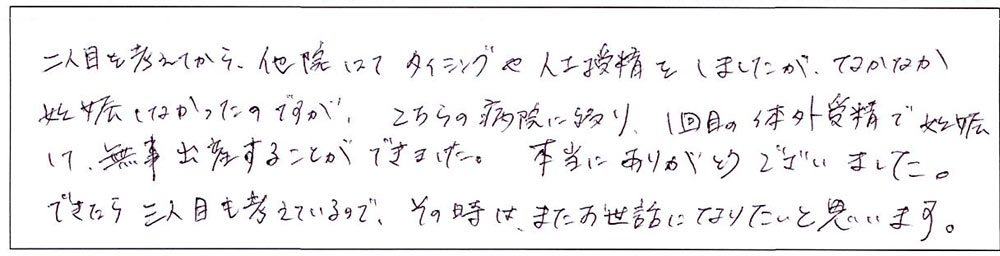 二人目を考えてから、他院にてタイミングや人工授精をしましたが、なかなか
妊娠しなかったのですが、こちらの病院に移り、1回目の体外受精で妊娠
して、無事出産することができました。本当にありがとうございました。
できたら三人目も考えているので、その時は、またお世話になりたいと思います。